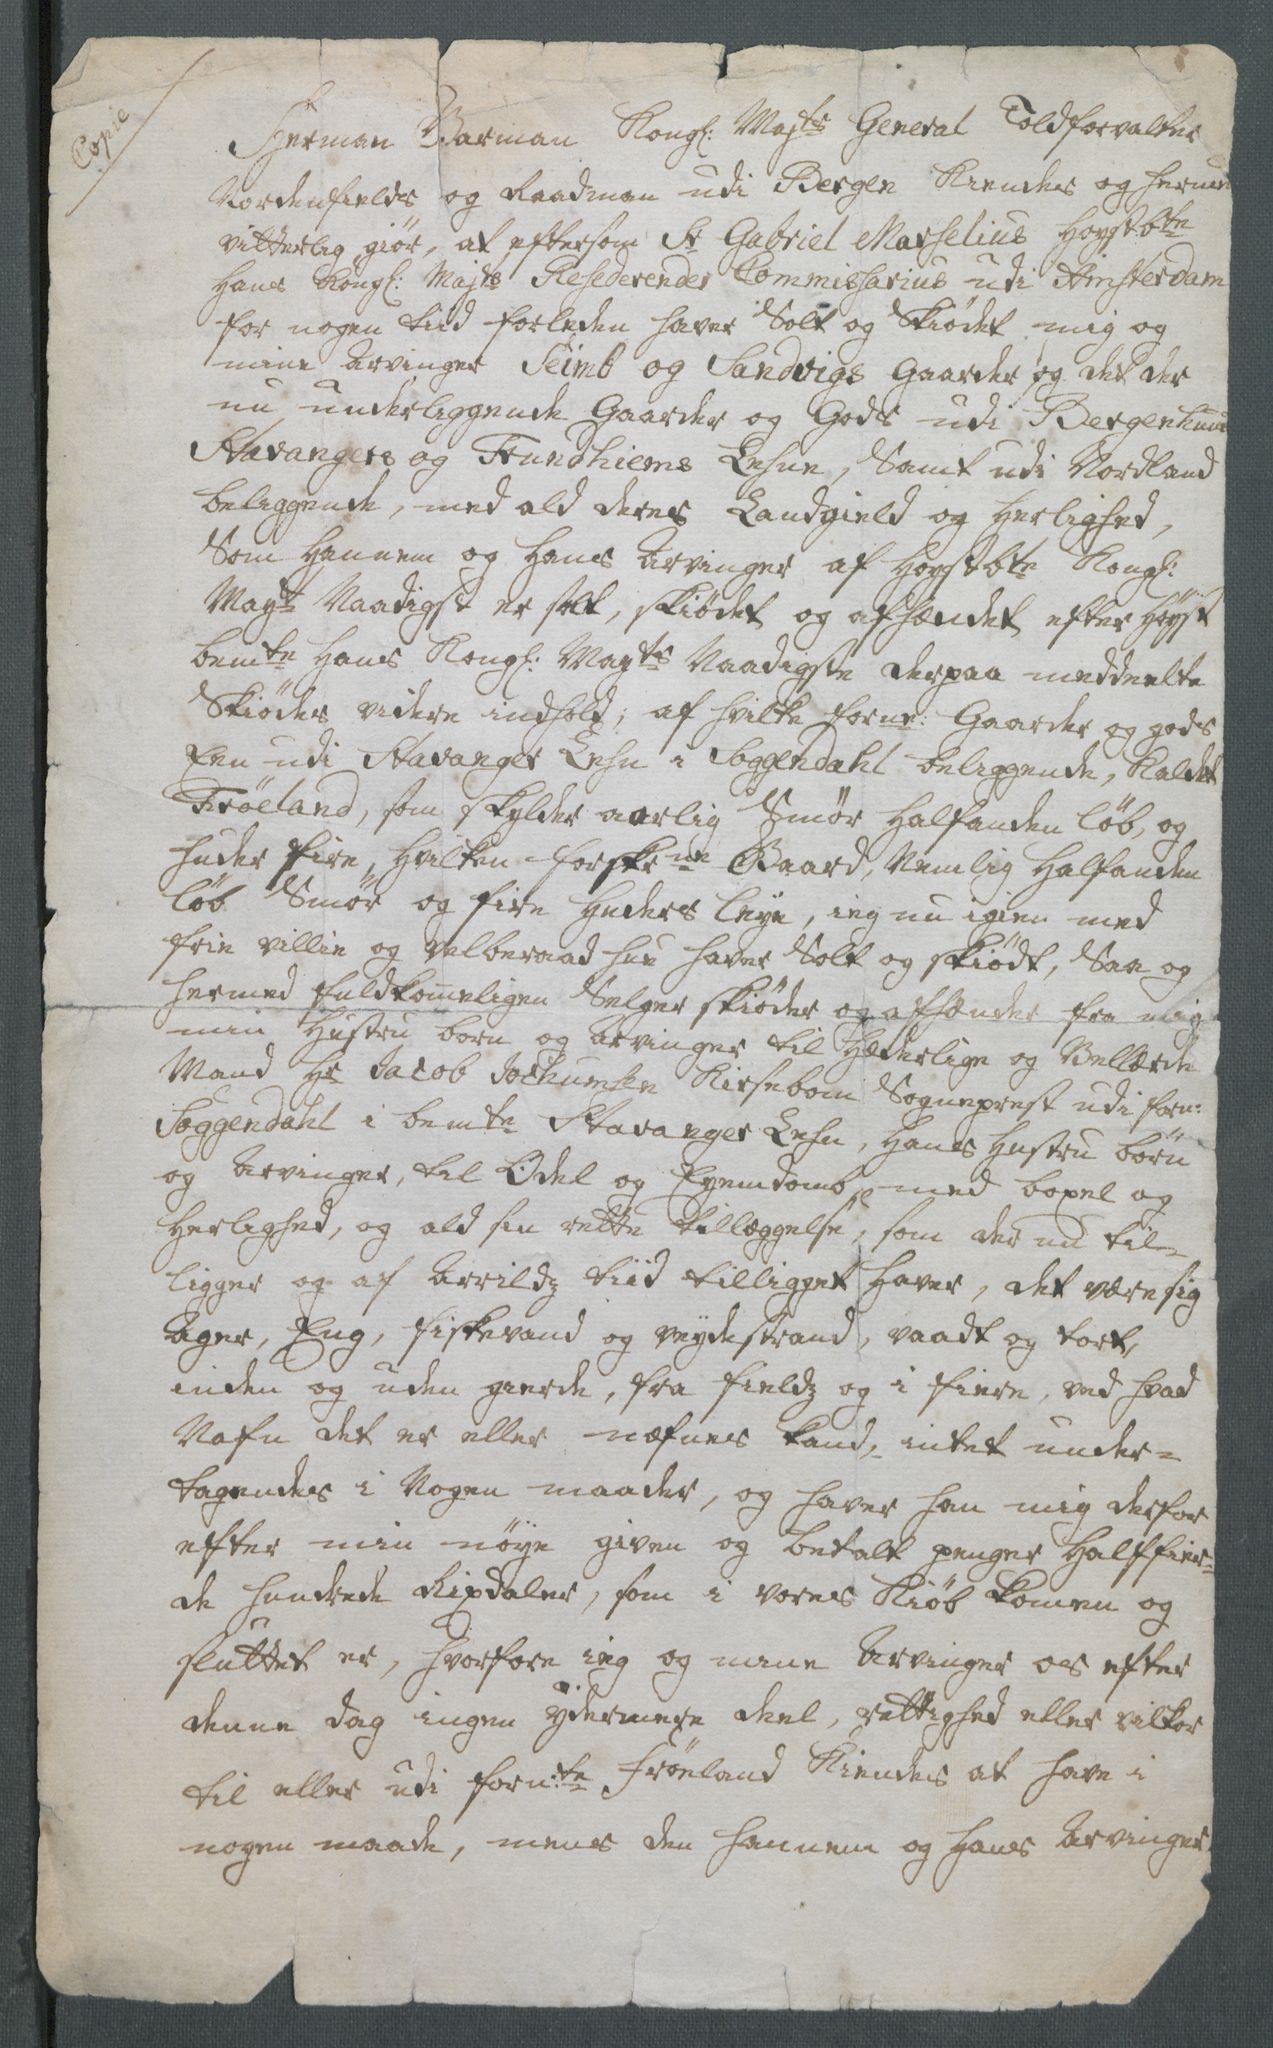 Copie
Herman Garman Kongl: Majts General Toldforvalter
Nordenfields og Raadman udi Bergen Kiendes og hermed
vitterlig giör, at eftersom Sr Gabriel Marselius Hoystbte
Hans Kongl: Majts Resederender Commissarius udi Amsterdam
for nogen tiid forleden haver Solt og Skiödet mig og
mine Arvinger Seimb og Sandvigs Gaarder og det der
nu underliggende Gaarder og Gods udi Bergenhuus
Stavangers og Trundhiems Lehne, Samt udi Nordland
beliggende, med ald deres Landgield og Herlighed,
Som Hannem og Hans Arvinger af Hoystbte Kongl:
Mayts Naadigst er solt, skiödet og afhændet efter Höyst
bemte Hans Kongl: Mayts Naadigste derpaa meddeelte
Skiödes videre indhold; af hvilke forne: Gaarder og gods
Een udi Stavanger Lehn i Soggendahl beliggende, Kaldet
Fröeland, som skylder aarlig Smör Halfanden löb, og
huder fire, Hvilken forskrne Gaard, Nemlig Halfanden
löb Smör og fire Huders leye, ieg nu igien med
frie villie og velberaad hue haver Solt og skiödt, Saa og
hermed fuldkommeligen Selger skiöder og afhænder fra mig
min Hustru born og Arvinger til Hæderlige og Vellærde
Mand Hr Jacob Jochumsen Kirsebom Sogneprest udi forn:
Soggendahl i bemte Stavanger Lehn, Hans Hustru börn
og Arvinger, til Odel og Eyendomb, med boxel og
Herlighed, og ald sin rette tillæggelse, som der nu til-
ligger og af Arrildz tiid tilligget haver, det være sig
Ager, Eng, fiskevand og veydestrand, vaadt og tort,
inden og uden gierde, fra fieldz og i fiere, ved hvad
Nafn det er eller næfnes kand, intet under-
tagendes i Nogen maader, og haver han mig derfor
efter min nöye given og betalt penger Halffier-
de hundrede Rixdaler, som i vores Kiöb komen og
sluttet er, hvorfore ieg og mine Arvinger os efter
denne dag ingen ydermere deel, rettighed eller vilkor
til eller udi forn:te Fröeland Kiendes at have i
nogen maade, mens den hannem og Hans Arvinger